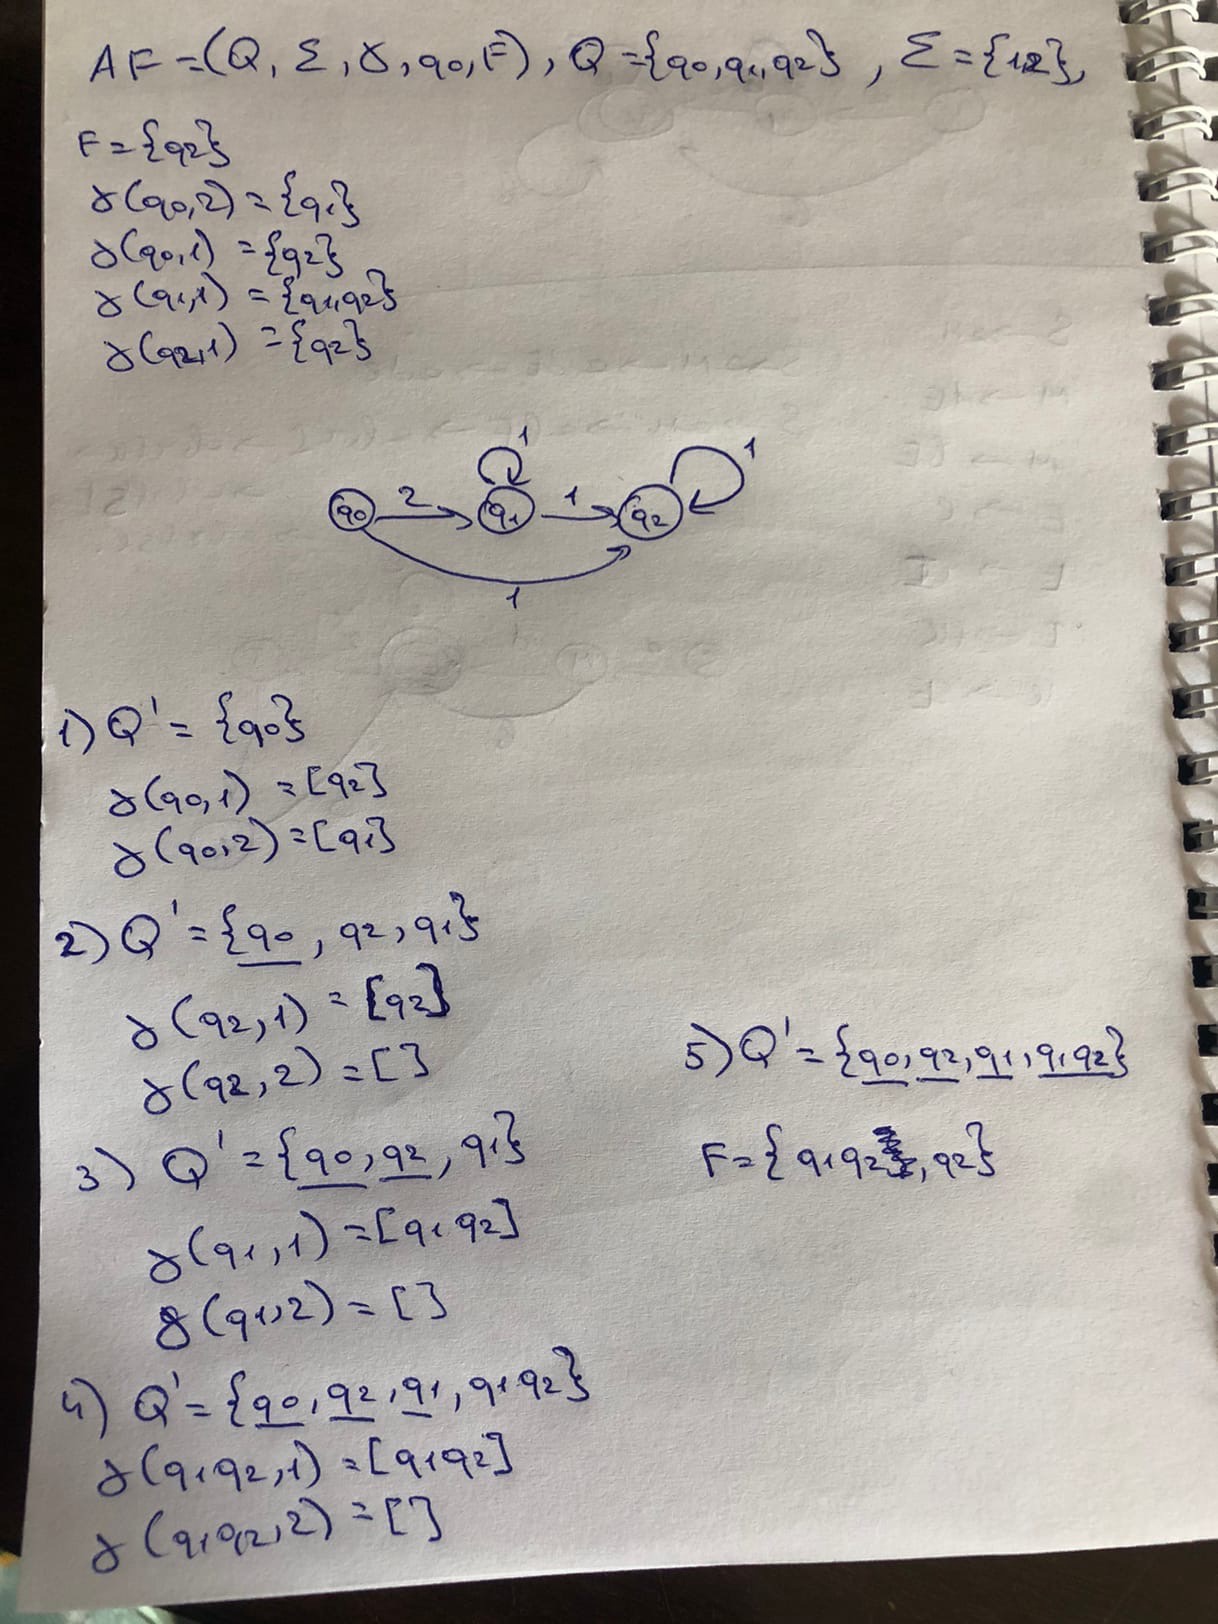 AF=(Q, Σ, γ, q0, F), Q={q0,q1,q2}, Σ={1,2},
F={q2}
γ(q0,2)={q1}
γ(q0,1)={q2}
γ(q1,1)={q1,q2}
γ(q2,1)={q2}
1 1
q0 2 q1 1 q2
1
1) Q'={q0}
γ(q0,1)=[q2]
γ(q0,2)=[q1]
2) Q'={q0, q2, q1}
γ(q2,1)=[q2]
γ(q2,2)=[]
3) Q'={q0, q2, q1}
γ(q1,1)=[q1q2]
γ(q1,2)=[]
4) Q'={q0, q2, q1, q1q2}
γ(q1q2,1)=[q1q2]
γ(q1q2,2)=[]
5) Q'={q0, q2, q1, q1q2}
F={q1q2, q2}